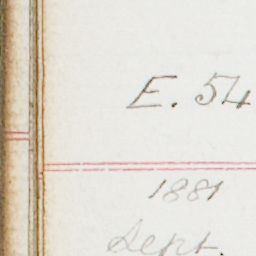 E. 54
1881
Sept.